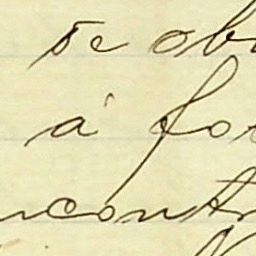 se ob
á fo
ncont